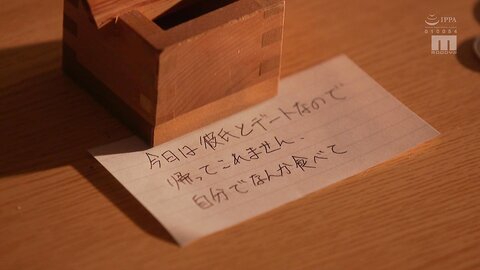 IPPA
010084
MOODYZ
今日は彼氏とデートなので
帰ってこれません.
自分でなんか食べて